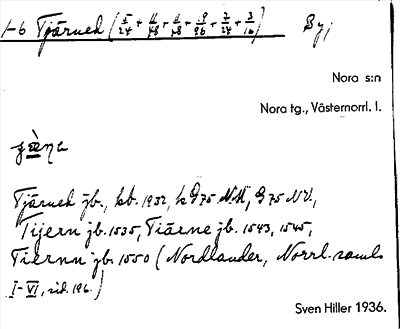 1-6 Tjärned (5/24 + 11/48 + 11/48 + 9/96 + 7/24 + 3/16) By;
Nora s:n
Nora tg., Västernorrl. l.
Tjärned jb., kb. 1932, k G75 NV, G75 NV,
Tijern jb. 1535, Tiärne jb. 1543, 1545,
Tiernn jb. 1550 (Nordlander, Norrl. saml.
I-VI, sid. 196.)
Sven Hiller 1936.